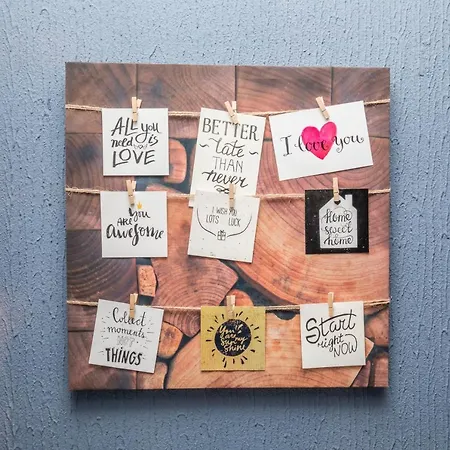 All you
need is
LOVE
BETTER
late
THAN
never
I love you
You
ARE
Awesome
I WISH YOU
LOTS LUCK
Home
sweet
home
Collect
moments
NOT
THINGS
You
are my
sun
shine
Start
right
NOW